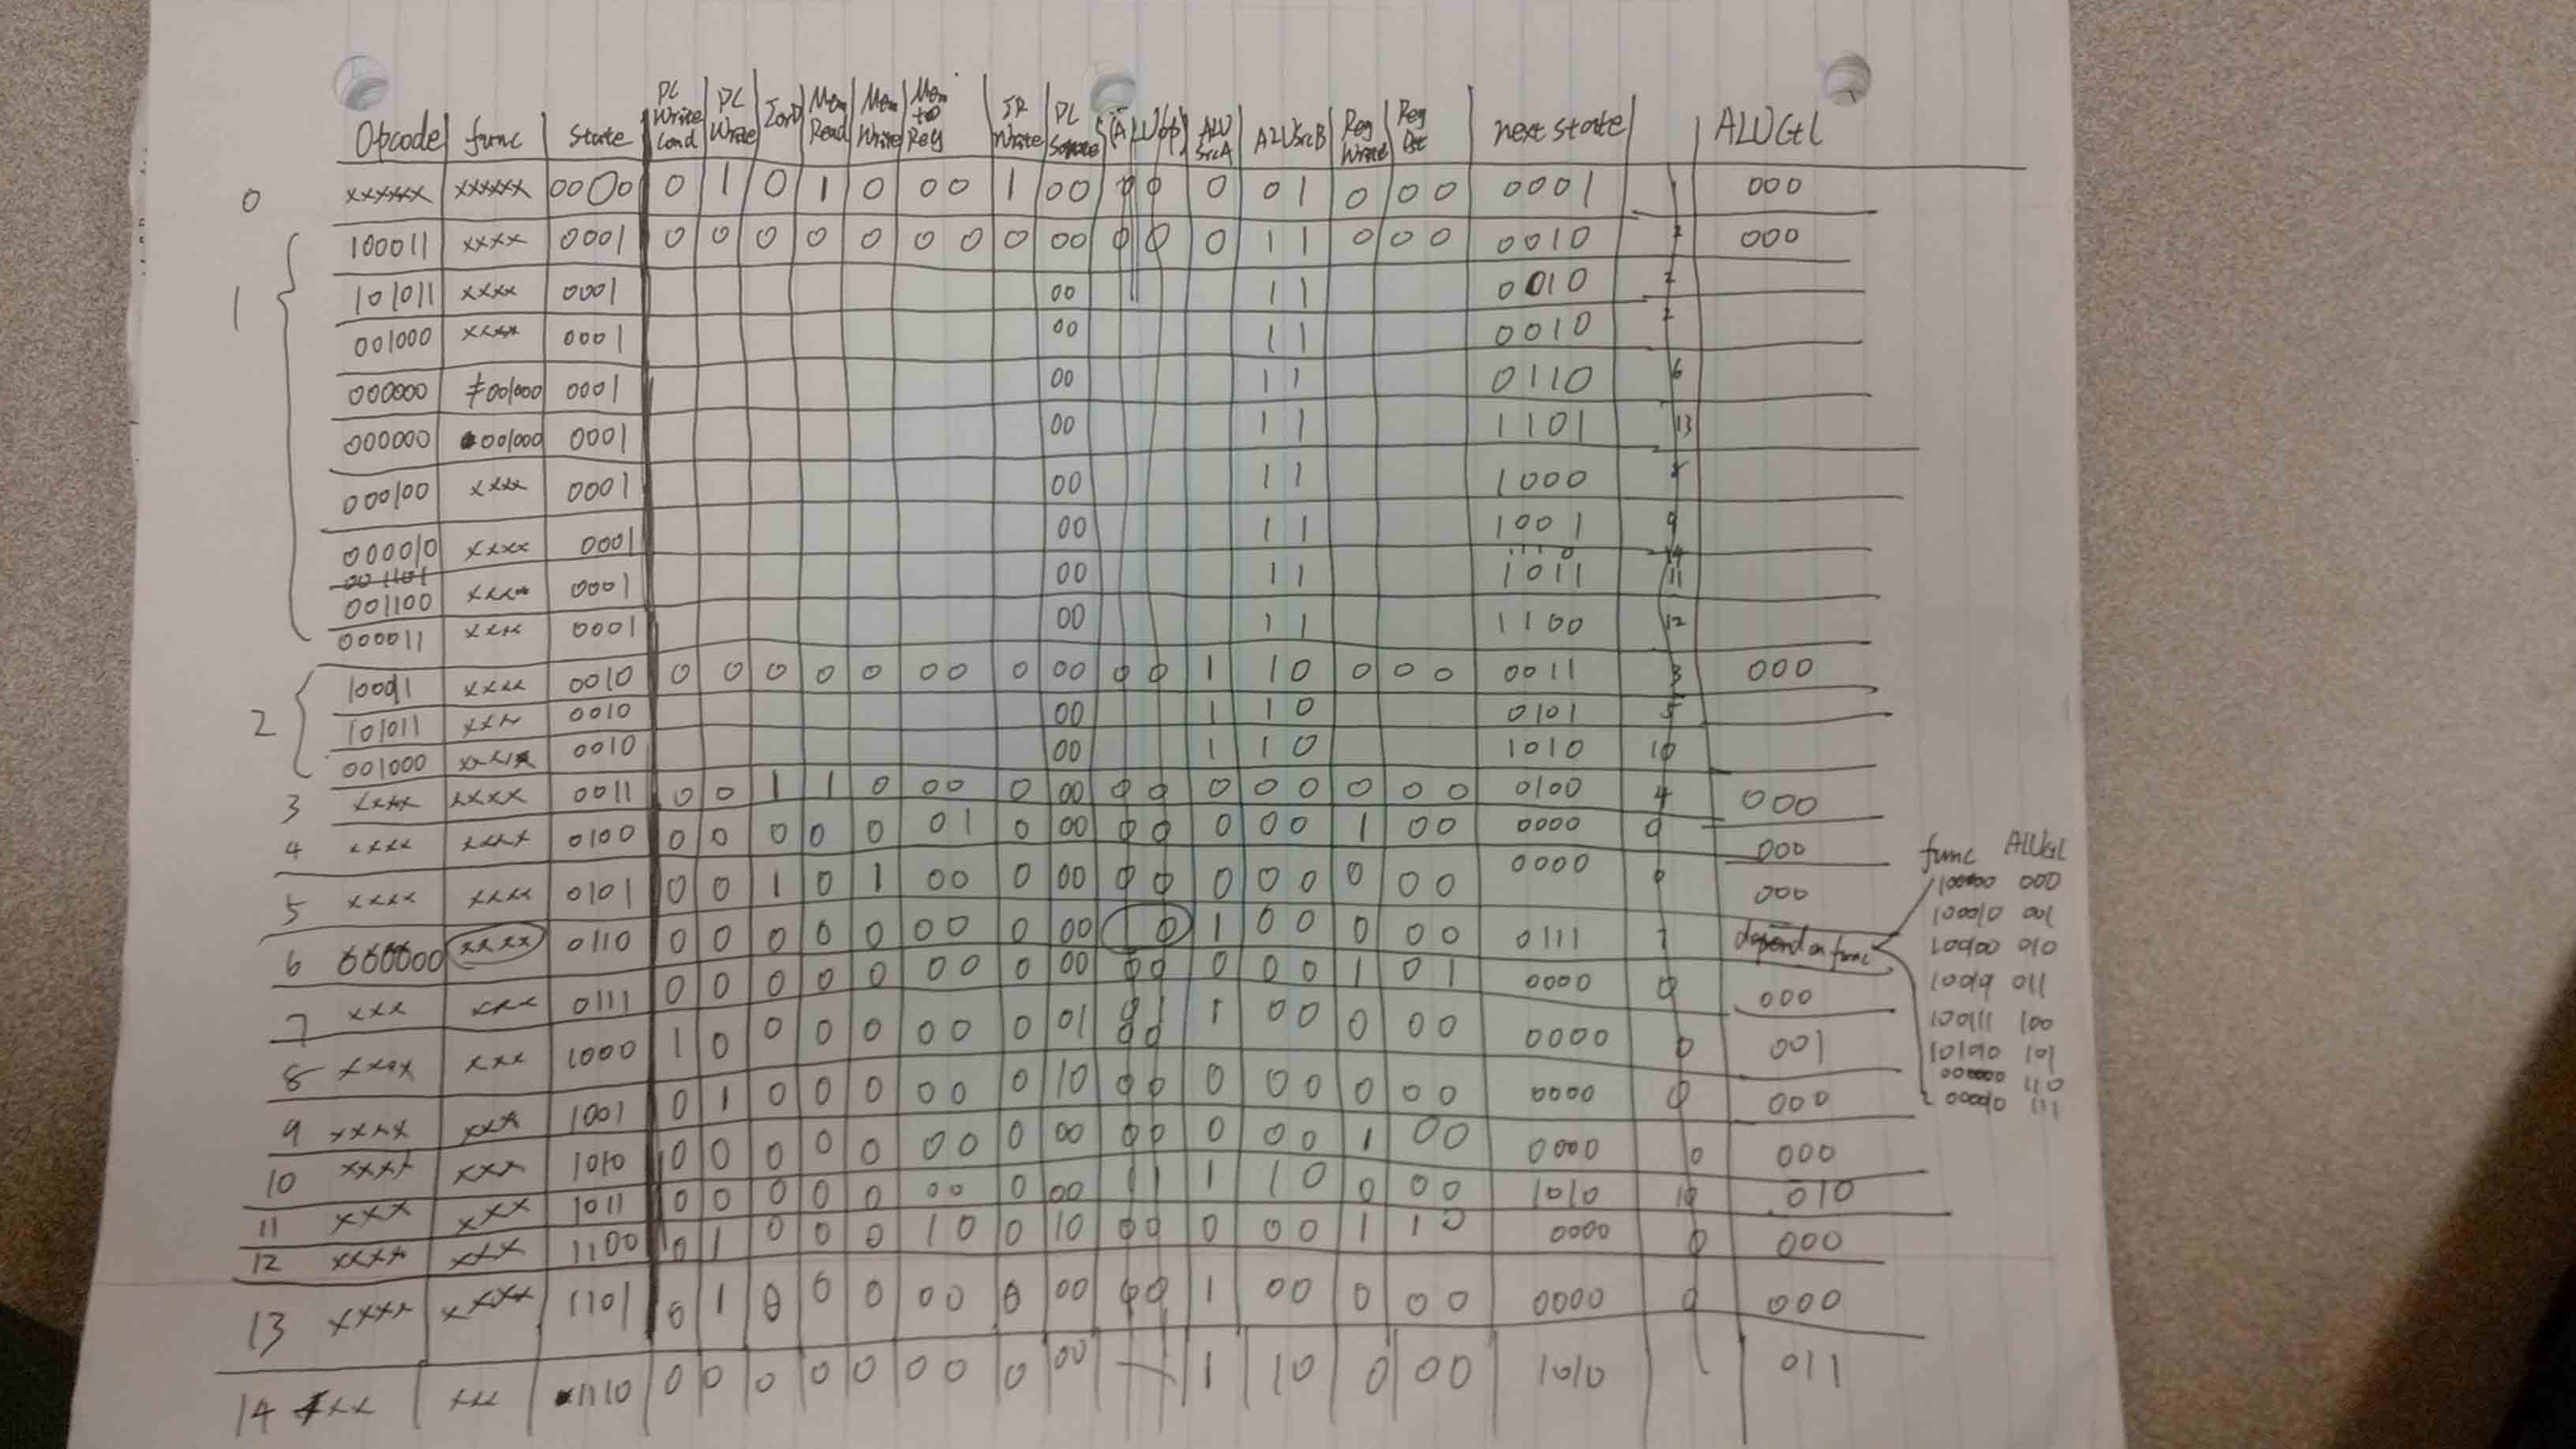 Opcode func State PC Write Cond PC Write IorD Mem Read Mem Write Mem to Reg IR Write PC Source (ALUop) ALU SrcA ALUSrcB Reg Write Reg Dst next state ALUCtl
0 xxxxxx xxxxxx 0000 0 1 0 1 0 00 1 00 00 0 01 0 00 0001 1 000
1 100011 xxxx 0001 0 0 0 0 0 00 0 00 00 0 11 0 00 0010 2 000
101011 xxxx 0001 00 11 0010 2
001000 xxxx 0001 00 11 0010 2
000000 ≠001000 0001 00 11 0110 6
000000 001000 0001 00 11 1101 13
000100 xxxx 0001 00 11 1000 8
000010 xxxx 0001 00 11 1001 9
001101 1110 14
001100 xxxx 0001 00 11 1011 11
000011 xxxx 0001 00 11 1100 12
2 10001 xxxx 0010 0 0 0 0 0 00 0 00 00 1 10 0 00 0011 3 000
101011 xxx 0010 00 1 10 0101 5
001000 xxxx 0010 00 1 10 1010 10
3 xxxx xxxx 0011 0 0 1 1 0 00 0 00 00 0 00 0 00 0100 4 000
4 xxxx xxxx 0100 0 0 0 0 0 01 0 00 00 0 00 1 00 0000 0 000
5 xxxx xxxx 0101 0 0 1 0 1 00 0 00 00 0 00 0 00 0000 0 000
6 000000 xxxx 0110 0 0 0 0 0 00 0 00 10 1 00 0 00 0111 7 depend on func
7 xxx xxx 0111 0 0 0 0 0 00 0 00 00 0 00 1 01 0000 0 000
8 xxxx xxx 1000 1 0 0 0 0 00 0 01 01 00 1 00 0 00 0000 0 001
9 xxxx xxx 1001 0 1 0 0 0 00 0 10 00 0 00 0 00 0000 0 000
10 xxxx xxx 1010 0 0 0 0 0 00 0 00 00 0 00 1 00 0000 0 000
11 xxx xxx 1011 0 0 0 0 0 00 0 00 11 1 10 0 00 1010 10 010
12 xxxx xxx 1100 0 1 0 0 0 10 0 10 00 0 00 1 10 0000 0 000
13 xxxx xxxx 1101 0 1 0 0 0 00 0 00 00 1 00 0 00 0000 0 000
14 xxx xxx 1110 0 0 0 0 0 00 0 00 1 10 0 00 1010 011
func ALUCtl
100000 000
100010 001
100100 010
100101 011
100111 100
101010 101
000000 110
000010 111